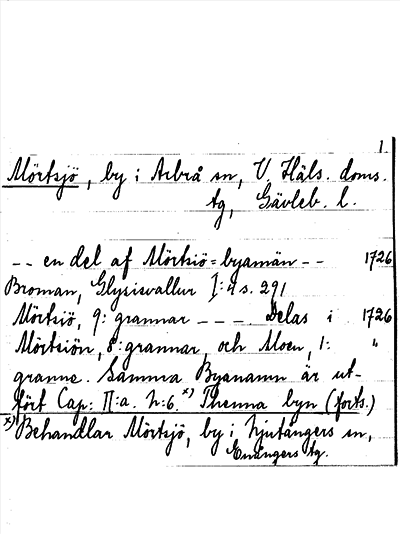 1
Mörtsjö, by i Arbrå sn, V. Häls. doms.
tg, Gävleb. l.
-- en del af Mörtsiö=byamän -- 1726
Broman, Glysisvallur I: 4 s. 291
Mörtsiö, 9: grannar --- Delas i 1726
Mörtsiön, 8: grannar, och Moen, 1: "
granne. Samma Byanamn är ut-
fört Cap: II: a. N: 6. x) Thenna byn (forts.)
x) Behandlar Mörtsjö, by i Njutångers sn,
Enångers tg.